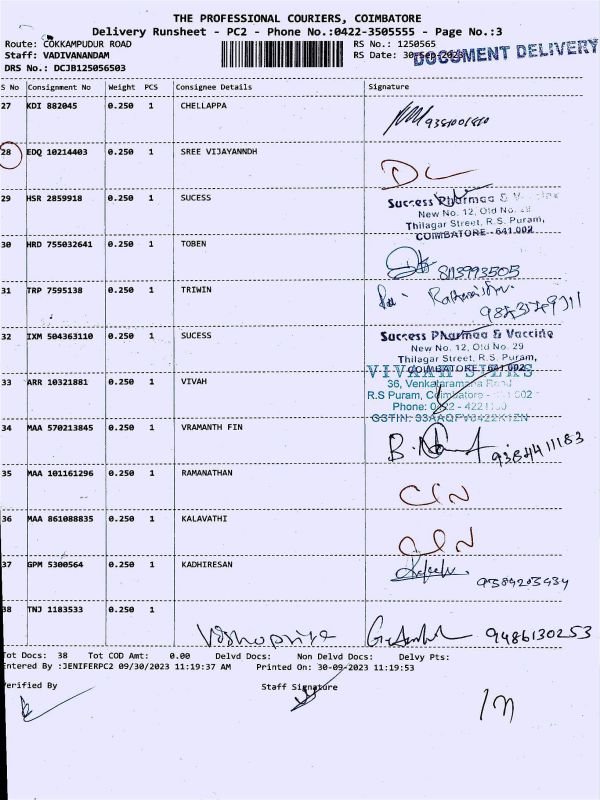 THE PROFESSIONAL COURIERS, COIMBATORE
Delivery Runsheet - PC2 - Phone No.:0422-3505555 - Page No.:3
Route: COKKAMPUDUR ROAD RS No.: 1250565
Staff: VADIVANANDAM RS Date: 30-Sep-2023
DOCUMENT DELIVERY
DRS No.: DCJB125056503
S No Consignment No Weight PCS Consignee Details Signature
27 KDI 882045 0.250 1 CHELLAPPA
28 EDQ 10214403 0.250 1 SREE VIJAYANNDH
DL
29 HSR 2859918 0.250 1 SUCESS
Success Pharmaa & Vaccine
New No. 12, Old No. 29
Thilagar Street, R.S. Puram,
COIMBATORE - 641 002
30 HRD 755032641 0.250 1 TOBEN
8113993505
31 TRP 7595138 0.250 1 TRIWIN
32 IXM 504363110 0.250 1 SUCESS
Success Pharmaa & Vaccine
New No. 12, Old No. 29
Thilagar Street, R.S. Puram,
COIMBATORE - 641 002
33 ARR 10321881 0.250 1 VIVAH
36, Venkataramana Road
R.S Puram, Coimbatore - 002
Phone: 0422 - 4221
GSTIN:
34 MAA 570213845 0.250 1 VRAMANTH FIN
9384411183
35 MAA 101161296 0.250 1 RAMANATHAN
36 MAA 861088835 0.250 1 KALAVATHI
37 GPM 5300564 0.250 1 KADHIRESAN
9384203434
38 TNJ 1183533 0.250 1
9486130253
Tot Docs: 38 Tot COD Amt: 0.00 Delvd Docs: Non Delvd Docs: Delvy Pts:
Entered By :JENIFERPC2 09/30/2023 11:19:37 AM Printed On: 30-09-2023 11:19:53
Verified By Staff Signature